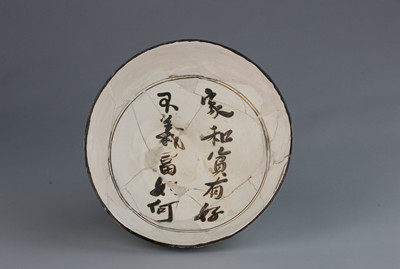 家和貧有好
不義富如何